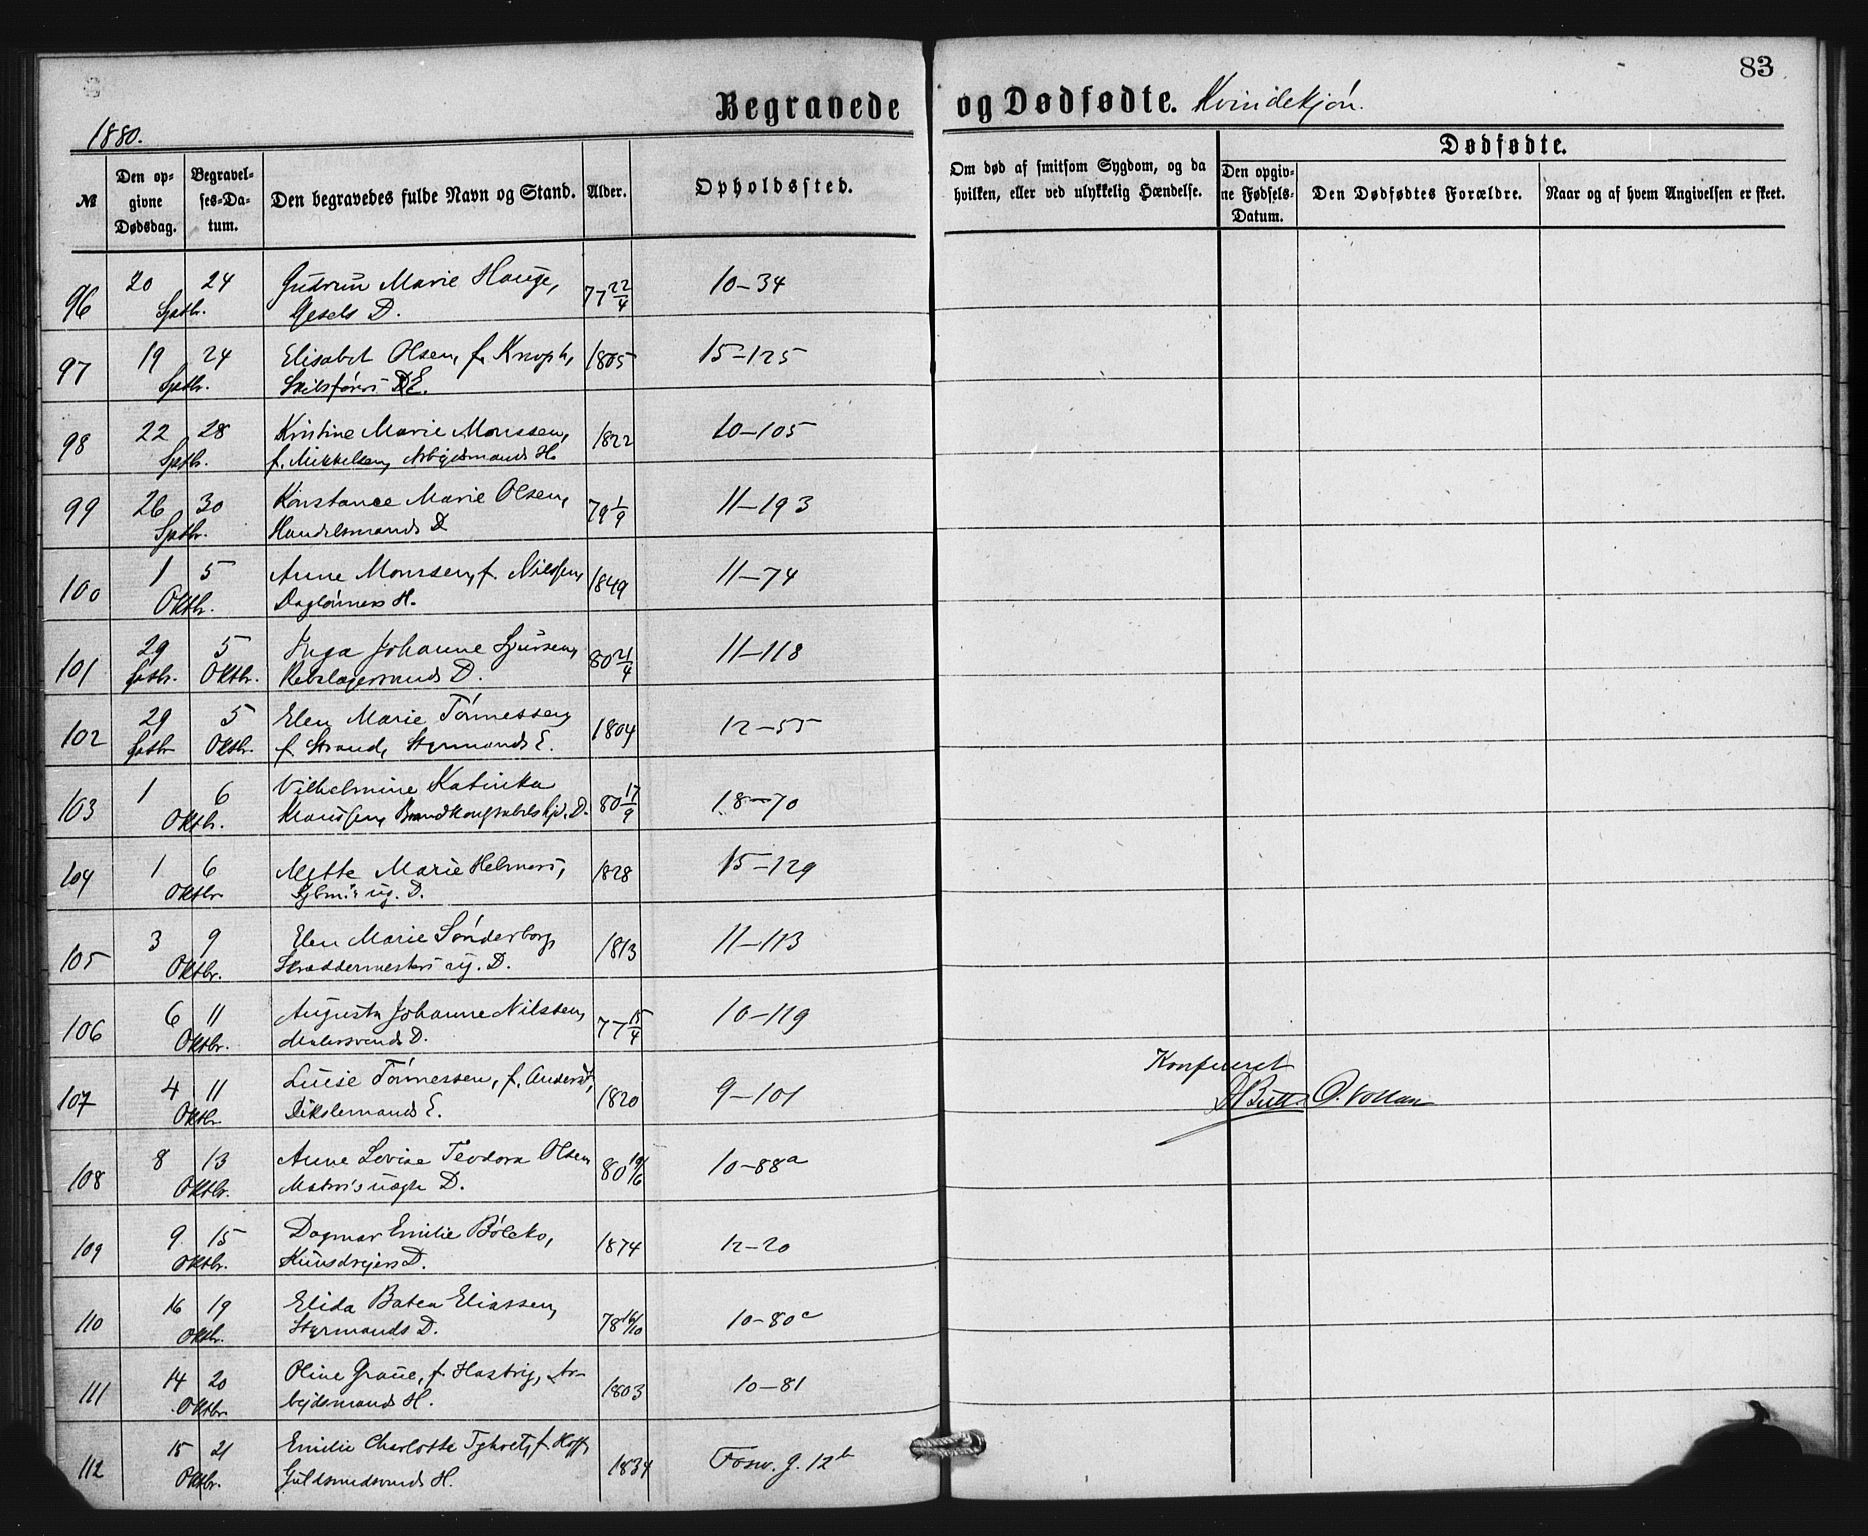 83
Begravede og Dødfødte. Kvindekjøn.
1880.
№
Den opgivne Dødsdag.
Begravelses-Datum.
Den begravedes fulde Navn og Stand.
Alder.
Opholdssted.
Om død af smitsom Sygdom, og da hvilken, eller ved ulykkelig Hændelse.
Dødfødte.
Den opgivne Fødsels-Datum.
Den Dødfødtes Forældre.
Naar og af hvem Angivelsen er skeet.
96 20 24 Gudrun Marie Hauge, 77 22/4 10–34
Sptbr. Gesels D.
97 19 24 Elisabet Olsen, f. Knoph, 1805 15–125
Sptbr. Skibsførers E.
98 22 28 Kristine Marie Monssen, 1822 10–105
Sptbr. f. Mikkelsen, Arbejdsmands H.
99 26 30 Konstance Marie Olsen, 79 1/9 11–193
Sptbr. Handelsmands D
100 1 5 Anne Monssen, f. Nilssen, 1849 11–74
Oktbr. Dagløners H.
101 29 5 Inga Johanne Sjursen, 80 21/4 11–118
Sptbr. Oktbr. Rebslagersvends D.
102 29 5 Elen Marie Tönnessen, 1804 12–55
Sptbr. Oktbr. f. Strand, Styrmands E.
103 1 6 Vilhelmine Katinka 80 17/9 18–70
Oktbr. Brandkonstabels D.
104 1 6 Mette Marie Helmers, 1828 15–129
Oktbr. ug. D.
105 3 9 Elen Marie Sønderborg, 1813 11–113
Oktbr. Skreddermesters ug. D.
106 6 11 Augusta Johanne Nilssen, 77 15/4 10–119
Oktbr. Malersvends D.
107 4 11 Luise Tönnessen, f. Anders, 1820 9–101
Oktbr. E.
Konfereret
O. Vollan
108 8 13 Anne Lovise Teodora Olsen 80 19/6 10–88a
Oktbr. D.
109 9 15 Dagmar Emilie 1874 12–20
Oktbr. D.
110 16 19 Elida Batea Eliassen, 78 16/10 10–80c
Oktbr. Styrmands D.
111 14 20 Oline Graue, f. Hastvig, Ar- 1803 10–81
Oktbr. bejdsmands H.
112 15 21 Emilie Charlotte f. Hoff, 1834 12b
Oktbr. Guldsmedsvends H.